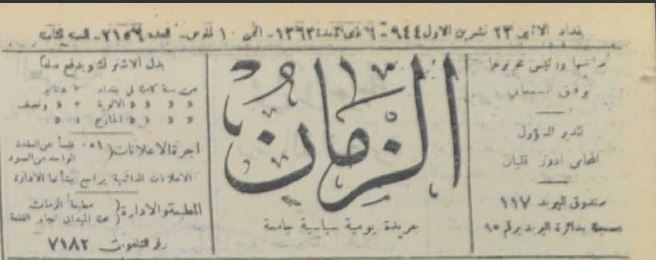 بغداد الاثنين ٢٣ تشرين الاول ٩٤٤ - ٦ ذي القعدة ١٣٦٣ - الثمن ١٠ فلوس - العدد ٢١٥٦ - السنة
صاحبها ورئيس تحريرها
توفيق السمعاني
المدير المسؤول
المحامي ادور قليان
صندوق البريد ١١٧
مسجلة بدائرة البريد برقم ١٥
الزمان
جريدة يومية سياسية جامعة
بدل الاشتراك ويدفع سلفا
عن سنة كاملة في بغداد ٢ دنانير
» » » » الالوية ٢ ونصف
» » » » الخارج ٤
اجرة الاعلانات (١٥٠ فلسا عن العقدة الواحد من العمود
الاعلانات الدائمية يراجع بشأنها الادارة
المطبعة والادارة (مطبعة الزمان محلة الميدان تجاه القلعة
رقم التلفون ٧١٨٢